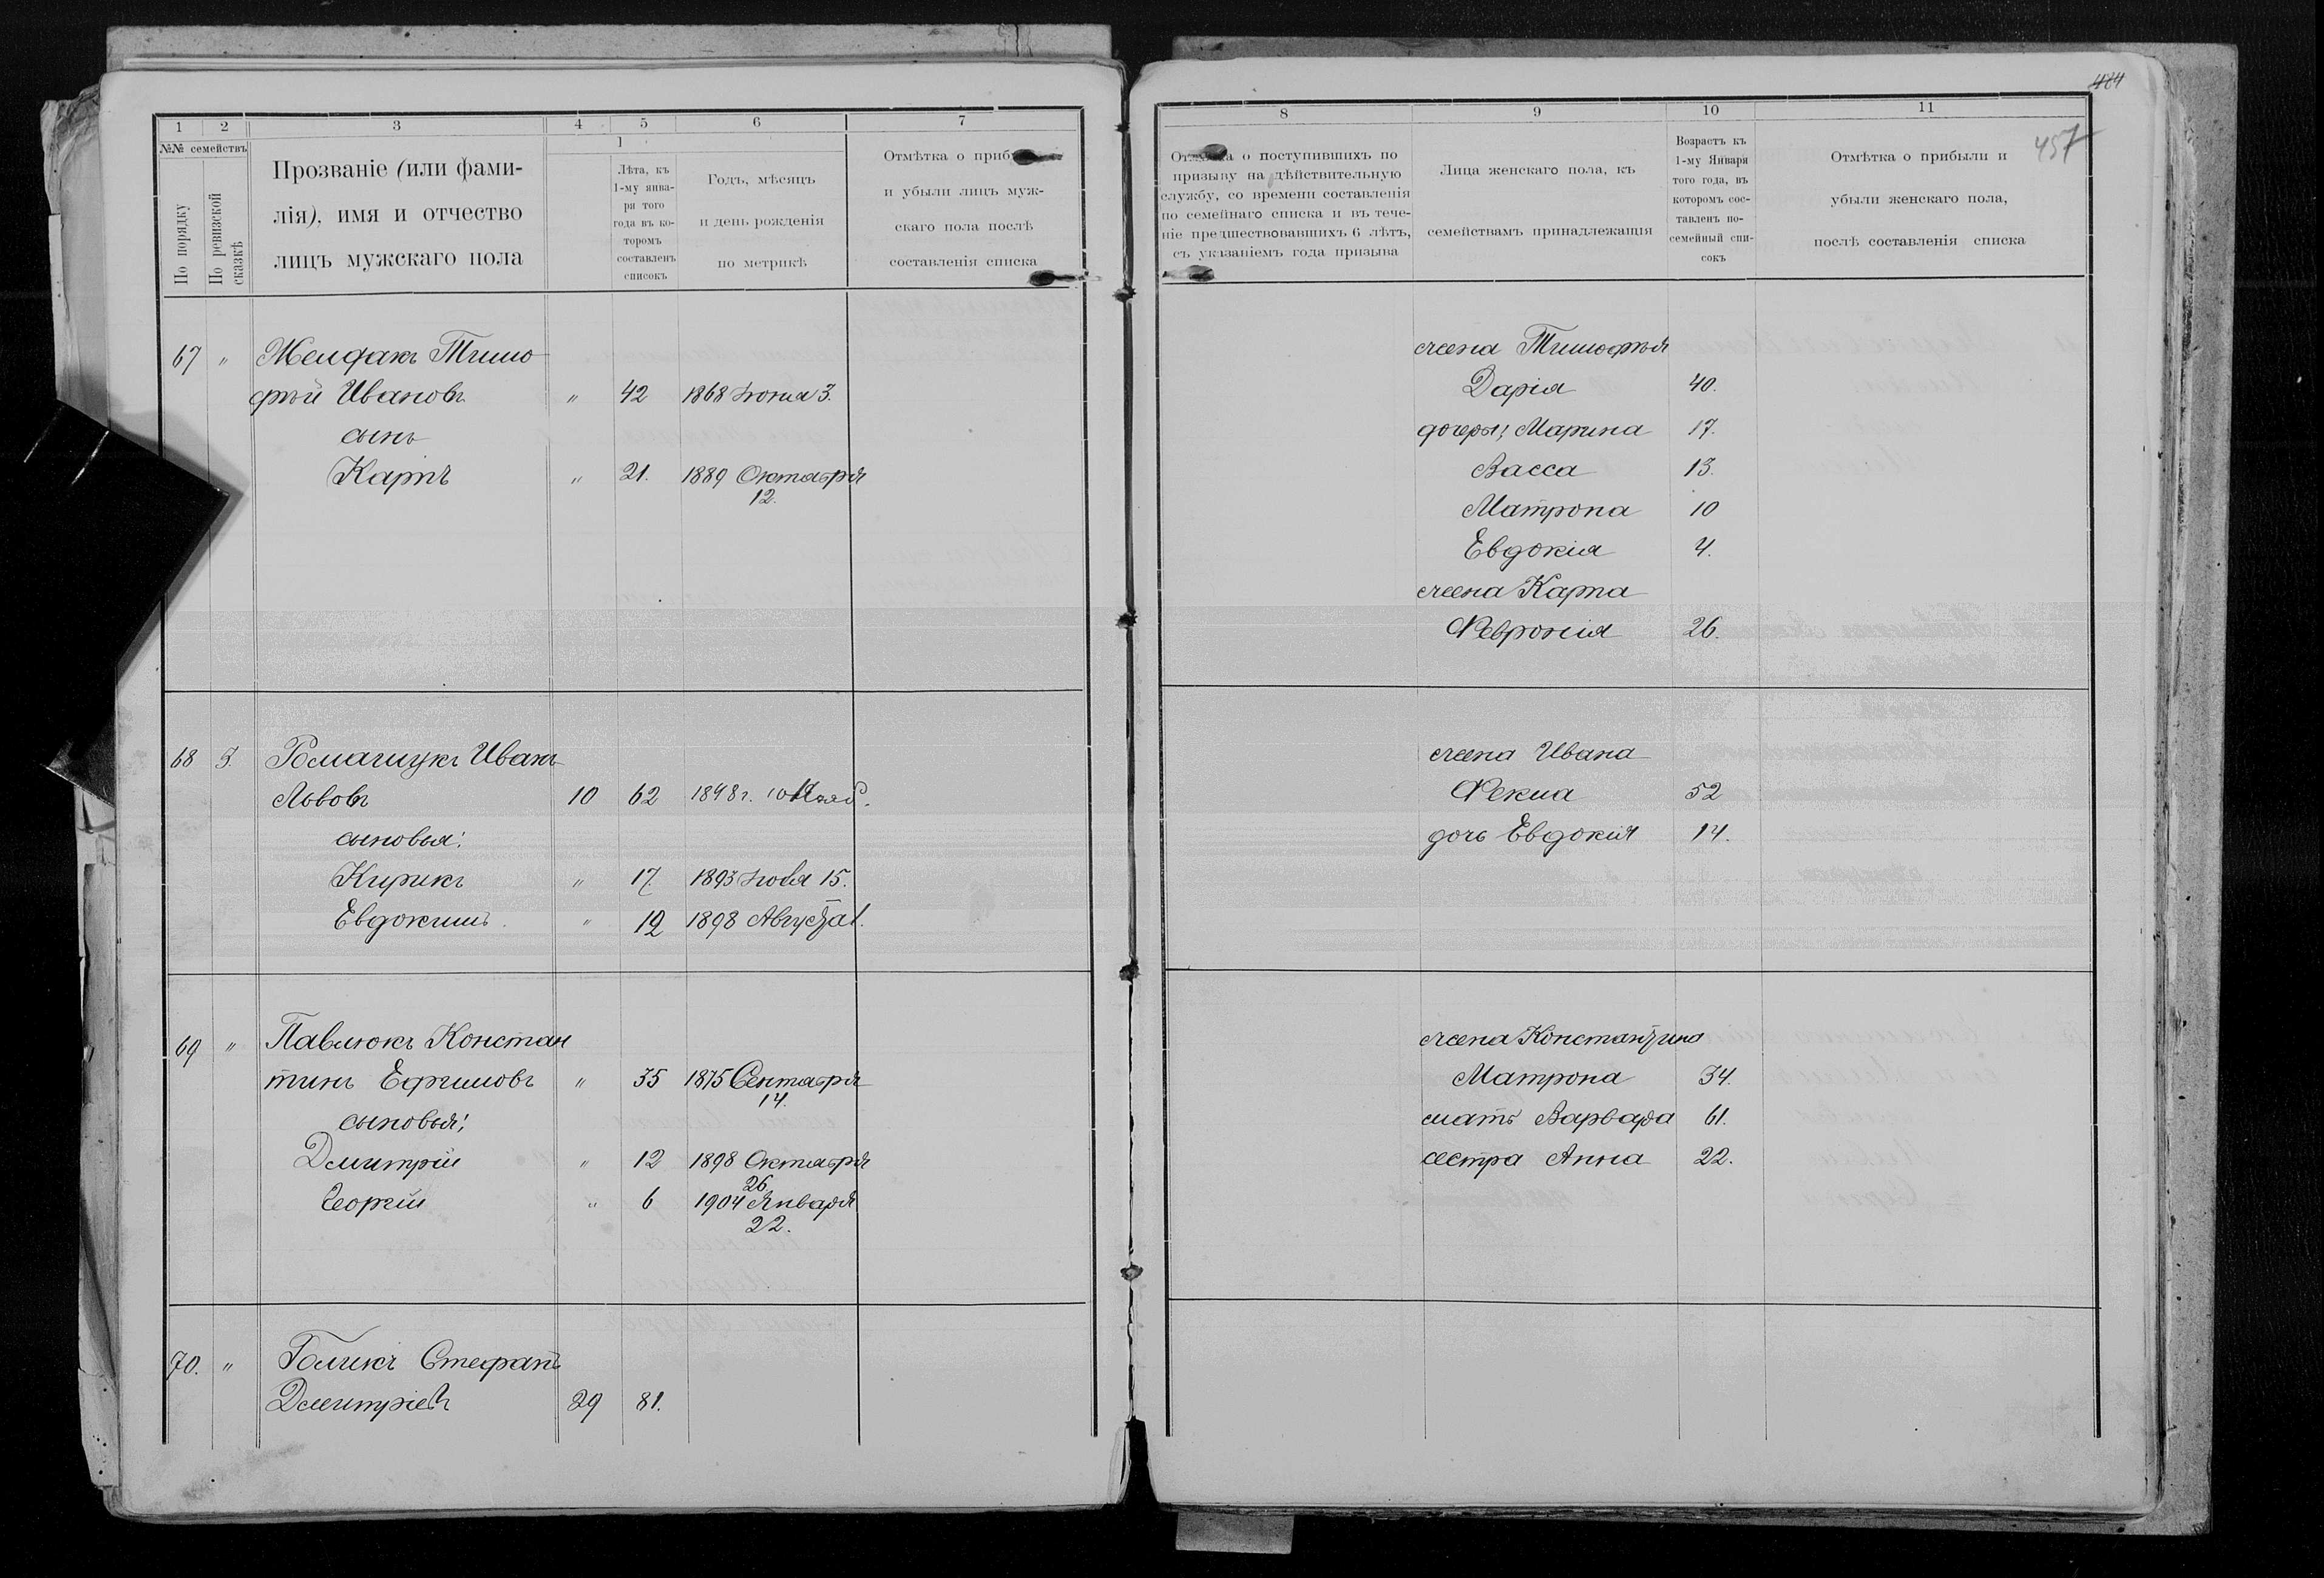 1 2 3 4 5 6 7
№№ семействъ
По порядку
По ревизской сказкѣ
Прозваніе (или фами-
лія), имя и отчество
лицъ мужскаго пола
1
Лѣта, къ
1-му янва-
ря того
года въ ко-
торомъ
составленъ
списокъ
Годъ, мѣсяцъ
и день рожденія
по метрикѣ
Отмѣтка о
и убыли лицъ муж-
скаго пола послѣ
составленія списка
67 " Тимо
фѣй Ивановъ " 42 1868 Іюня 3.
сынъ
Карпъ " 21. 1889 Октября
12.
68 5. Ромащукъ Иванъ
Львовъ 10 62 1848 г.
сыновья:
Кирикъ " 17. 1893 Іюля 15.
Евдокимъ " 12 1898 Августа 1.
69 " Павлюкъ Констан
тинъ Ефимовъ " 35 1875 Сентября
14.
сыновья:
Дмитрій " 12 1898 Октября
26
Георгій " 6 1904 Января
22.
70. " Стефанъ
Дмитріевъ 29 81.
484
457
8 9 10 11
Отмѣтка о поступившихъ по
призыву на дѣйствительную
службу, со времени составленія
по семейнаго списка и въ тече-
ніе предшествовавшихъ 6 лѣтъ,
съ указаніемъ года призыва
Лица женскаго пола, къ
семействамъ принадлежащія
Возрастъ къ
1-му Января
того года, въ
которомъ сос-
тавленъ по-
семейный спи-
сокъ
Отмѣтка о прибыли и
убыли женскаго пола,
послѣ составленія списка
жена Тимофѣя
Дарія 40.
дочери: Марина 17.
Васса 13.
Матрона 10
Евдокія 4.
жена Карпа
Февронія 26.
жена Ивана
Фекла 52
дочь Евдокія 14.
жена Константина
Матрона 34.
мать Варвара 61.
сестра Анна 22.